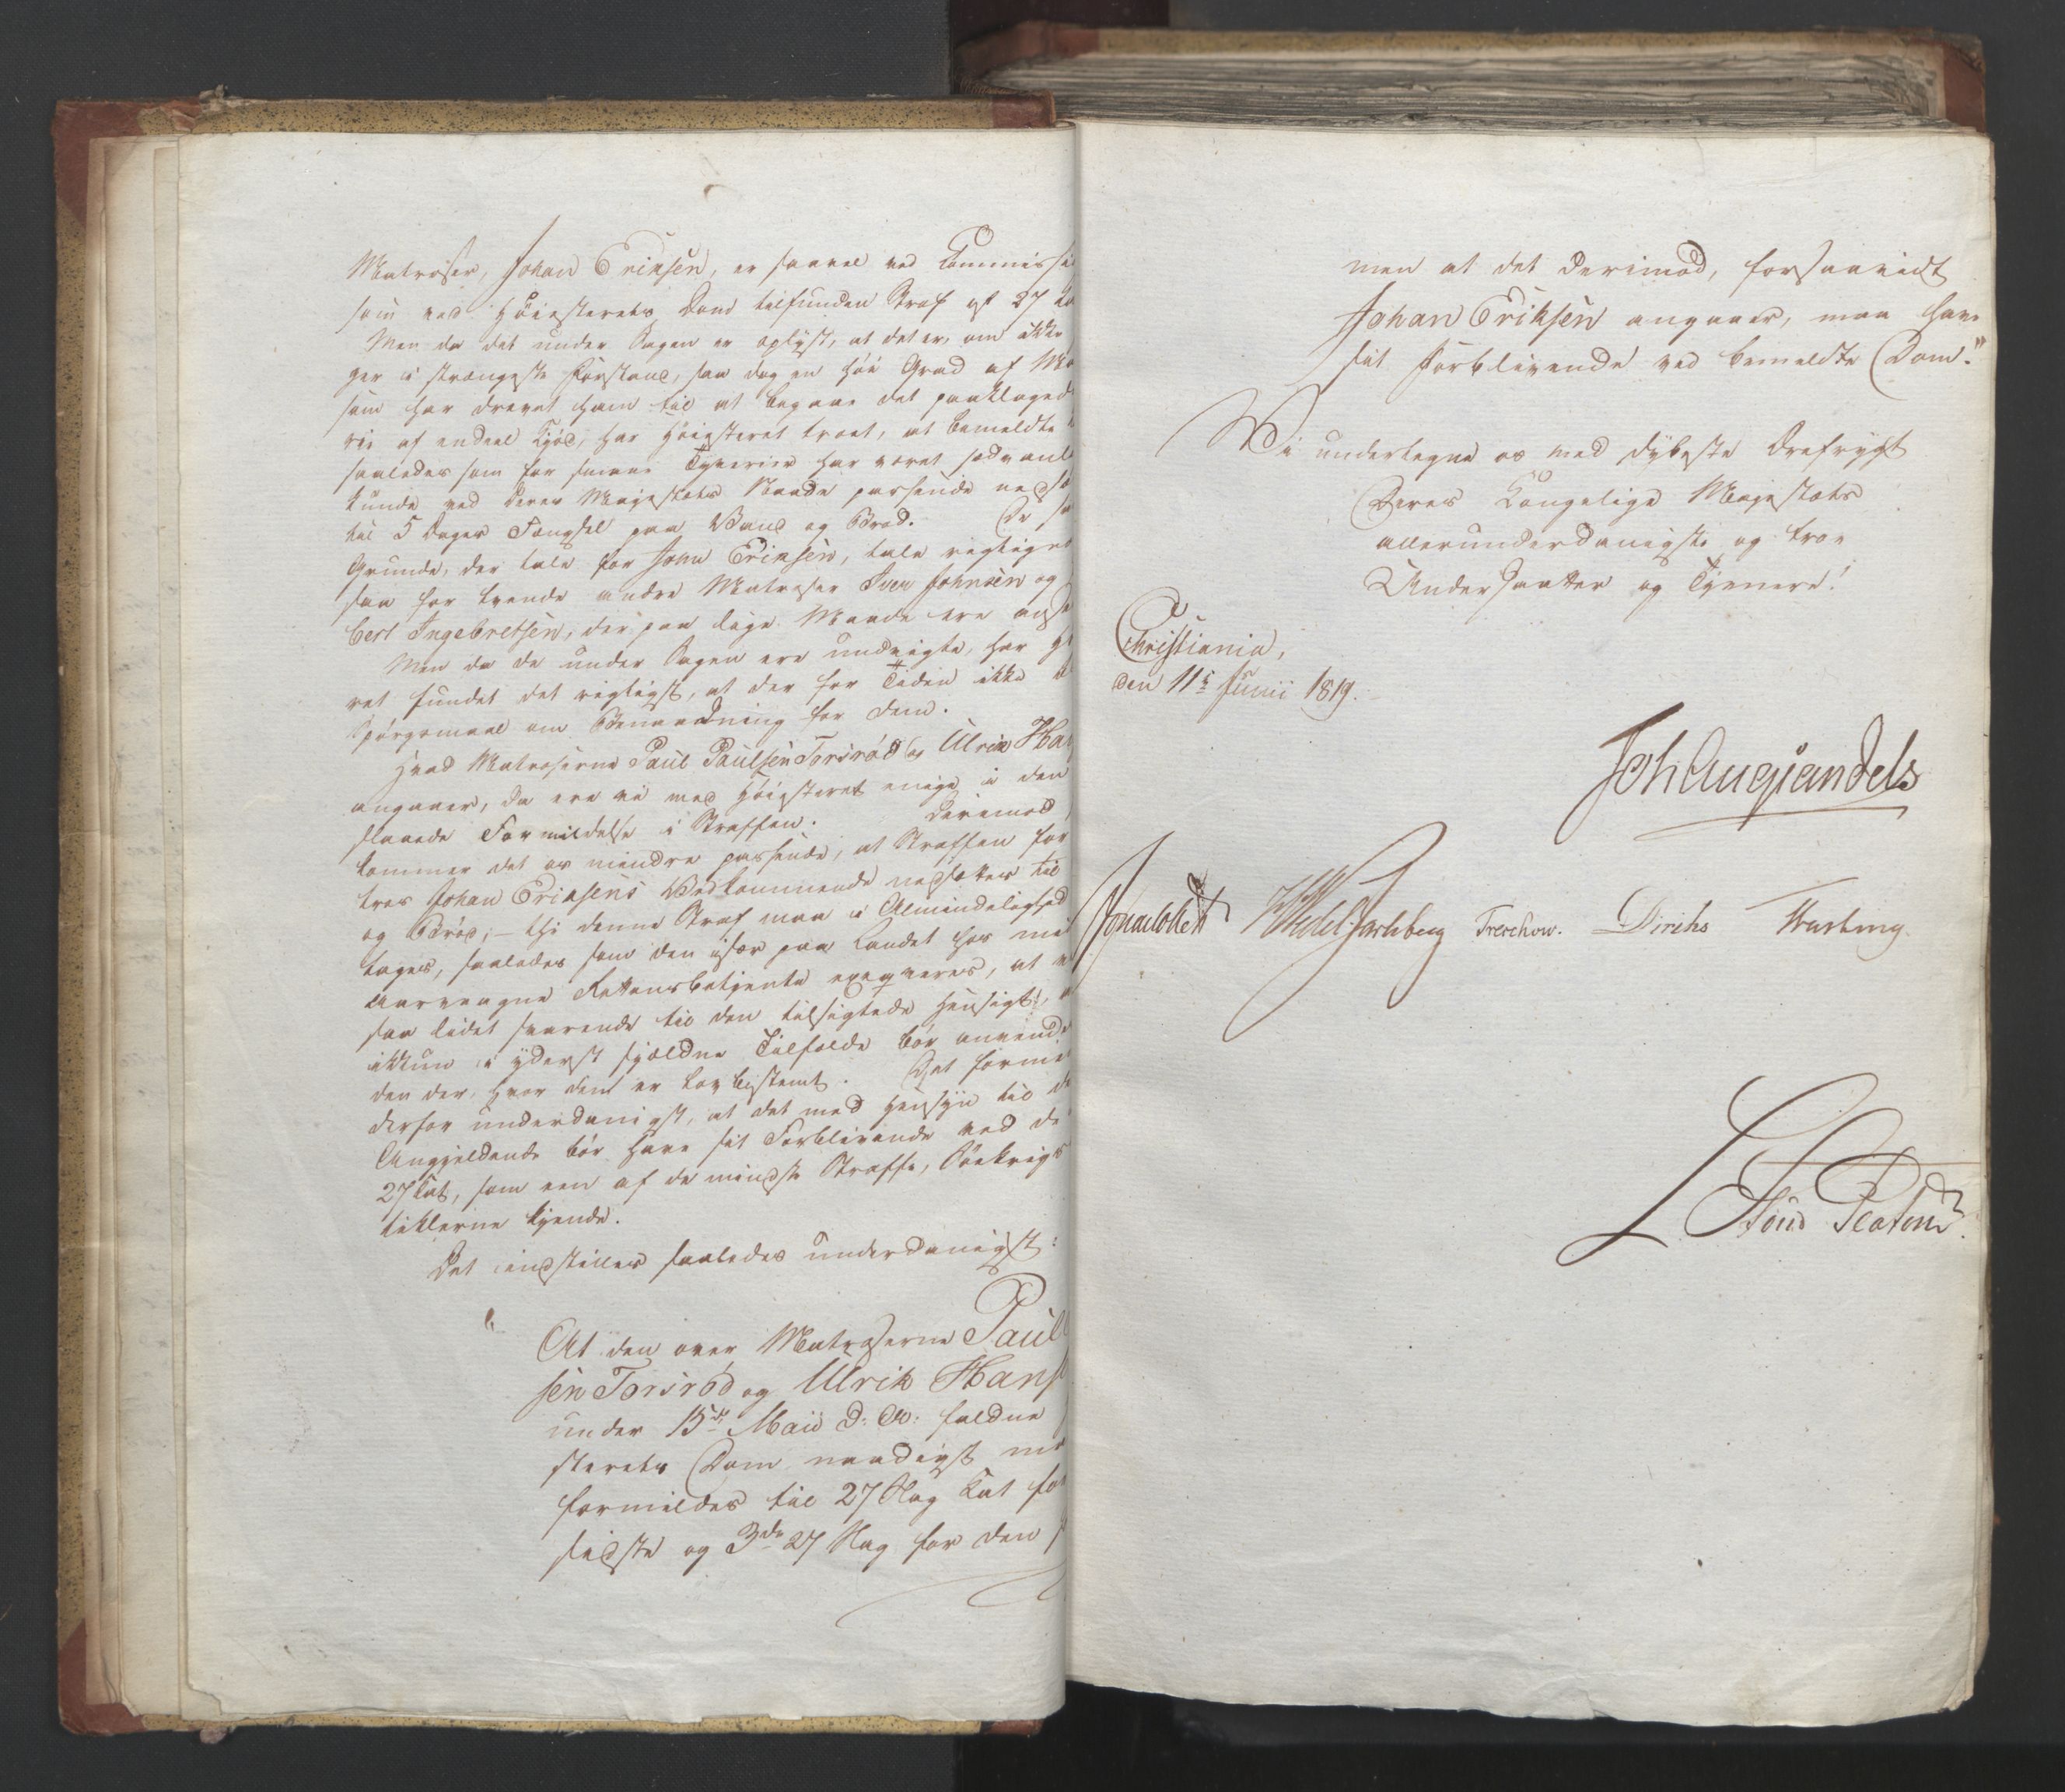 Matroser, Johan Eriksen, er saavel ved Commissi
som ved Höiesterets Dom tilfunden Straf af 27 Ka
Men da det under Sagen er oplyst, at det er, om ikke
ger i strængeste Forstand, saa dog en höi Grad af Ma
som har drevet ham til at begaae det paaklagede
rie af endeel Kjöd, har Höiesteret troet, at bemeldte
saaledes som for smaae Tyverier har været sædvanl
kunde ved Deres Majestæts Naade passende nedsæ
til 5 Dages Fængsel paa Vand og Bröd. De sa
Grunde, der tale for John Eriksen, tale rigtigno
saa for tvende andre Matroser Iver Johnsen og
bert Ingebretsen, der paa lige Maade ere ansee
Men da de under Sagen ere undvigte, har Hö
ret fundet det rigtigst, at der for Tiden ikke b
Spörgsmaal om Benaadning for dem.
Hvad Matroserne Paul Paulsen Torsröd og Ulrik Han
angaaer, da ere vi med Höiesteret enige i den
slaaede Formildelse i Straffen. Derimod
kommer det os mindre passende, at Straffen for
tros Johan Eriksens Vedkommende nedsættes til
og Bröd; – thi denne Straf maa i Almindelighed
tages, saaledes som den især paa Landet hos mi
aarvaagne Rettensbetjente exeqveres, at v
saa lidet svarende til den tilsigtede Hensigt, a
ikkun i yderst sjældne Tilfælde bör anvend
den der, hvor den er Lovbestemt. Det forme
derfor underdanigst, at det med Hensyn til d
Angjeldende bör have sit Forblivende ved de
27 Kat, som een af de mindste Straffe, Söekrigs
tiklerne kjende.
Det indstilles saaledes underdanigst:
"At den over Matroserne Paul
sen Torsröd og Ulrik Hans
under 15de Maii d: A: faldne
sterets Dom naadigst m
formildes til 27 Slag Kat for
sidste og 3de 27 Slag for den
men at det derimod, forsaavidt
Johan Eriksen angaaer, maa have
sit Forblivende ved bemeldte Dom."
Vi undertegne os med dybeste Ærefrygt
Deres Kongelige Majestæts
allerunderdanigste og troe
Undersaatter og Tjenere!
Christiania,
den 11te Junii 1819.
Joh Aug Sandels
Sommerhielm HWedel Jarlsberg Treschow. Diriks Fasting.
L Stoud Platou